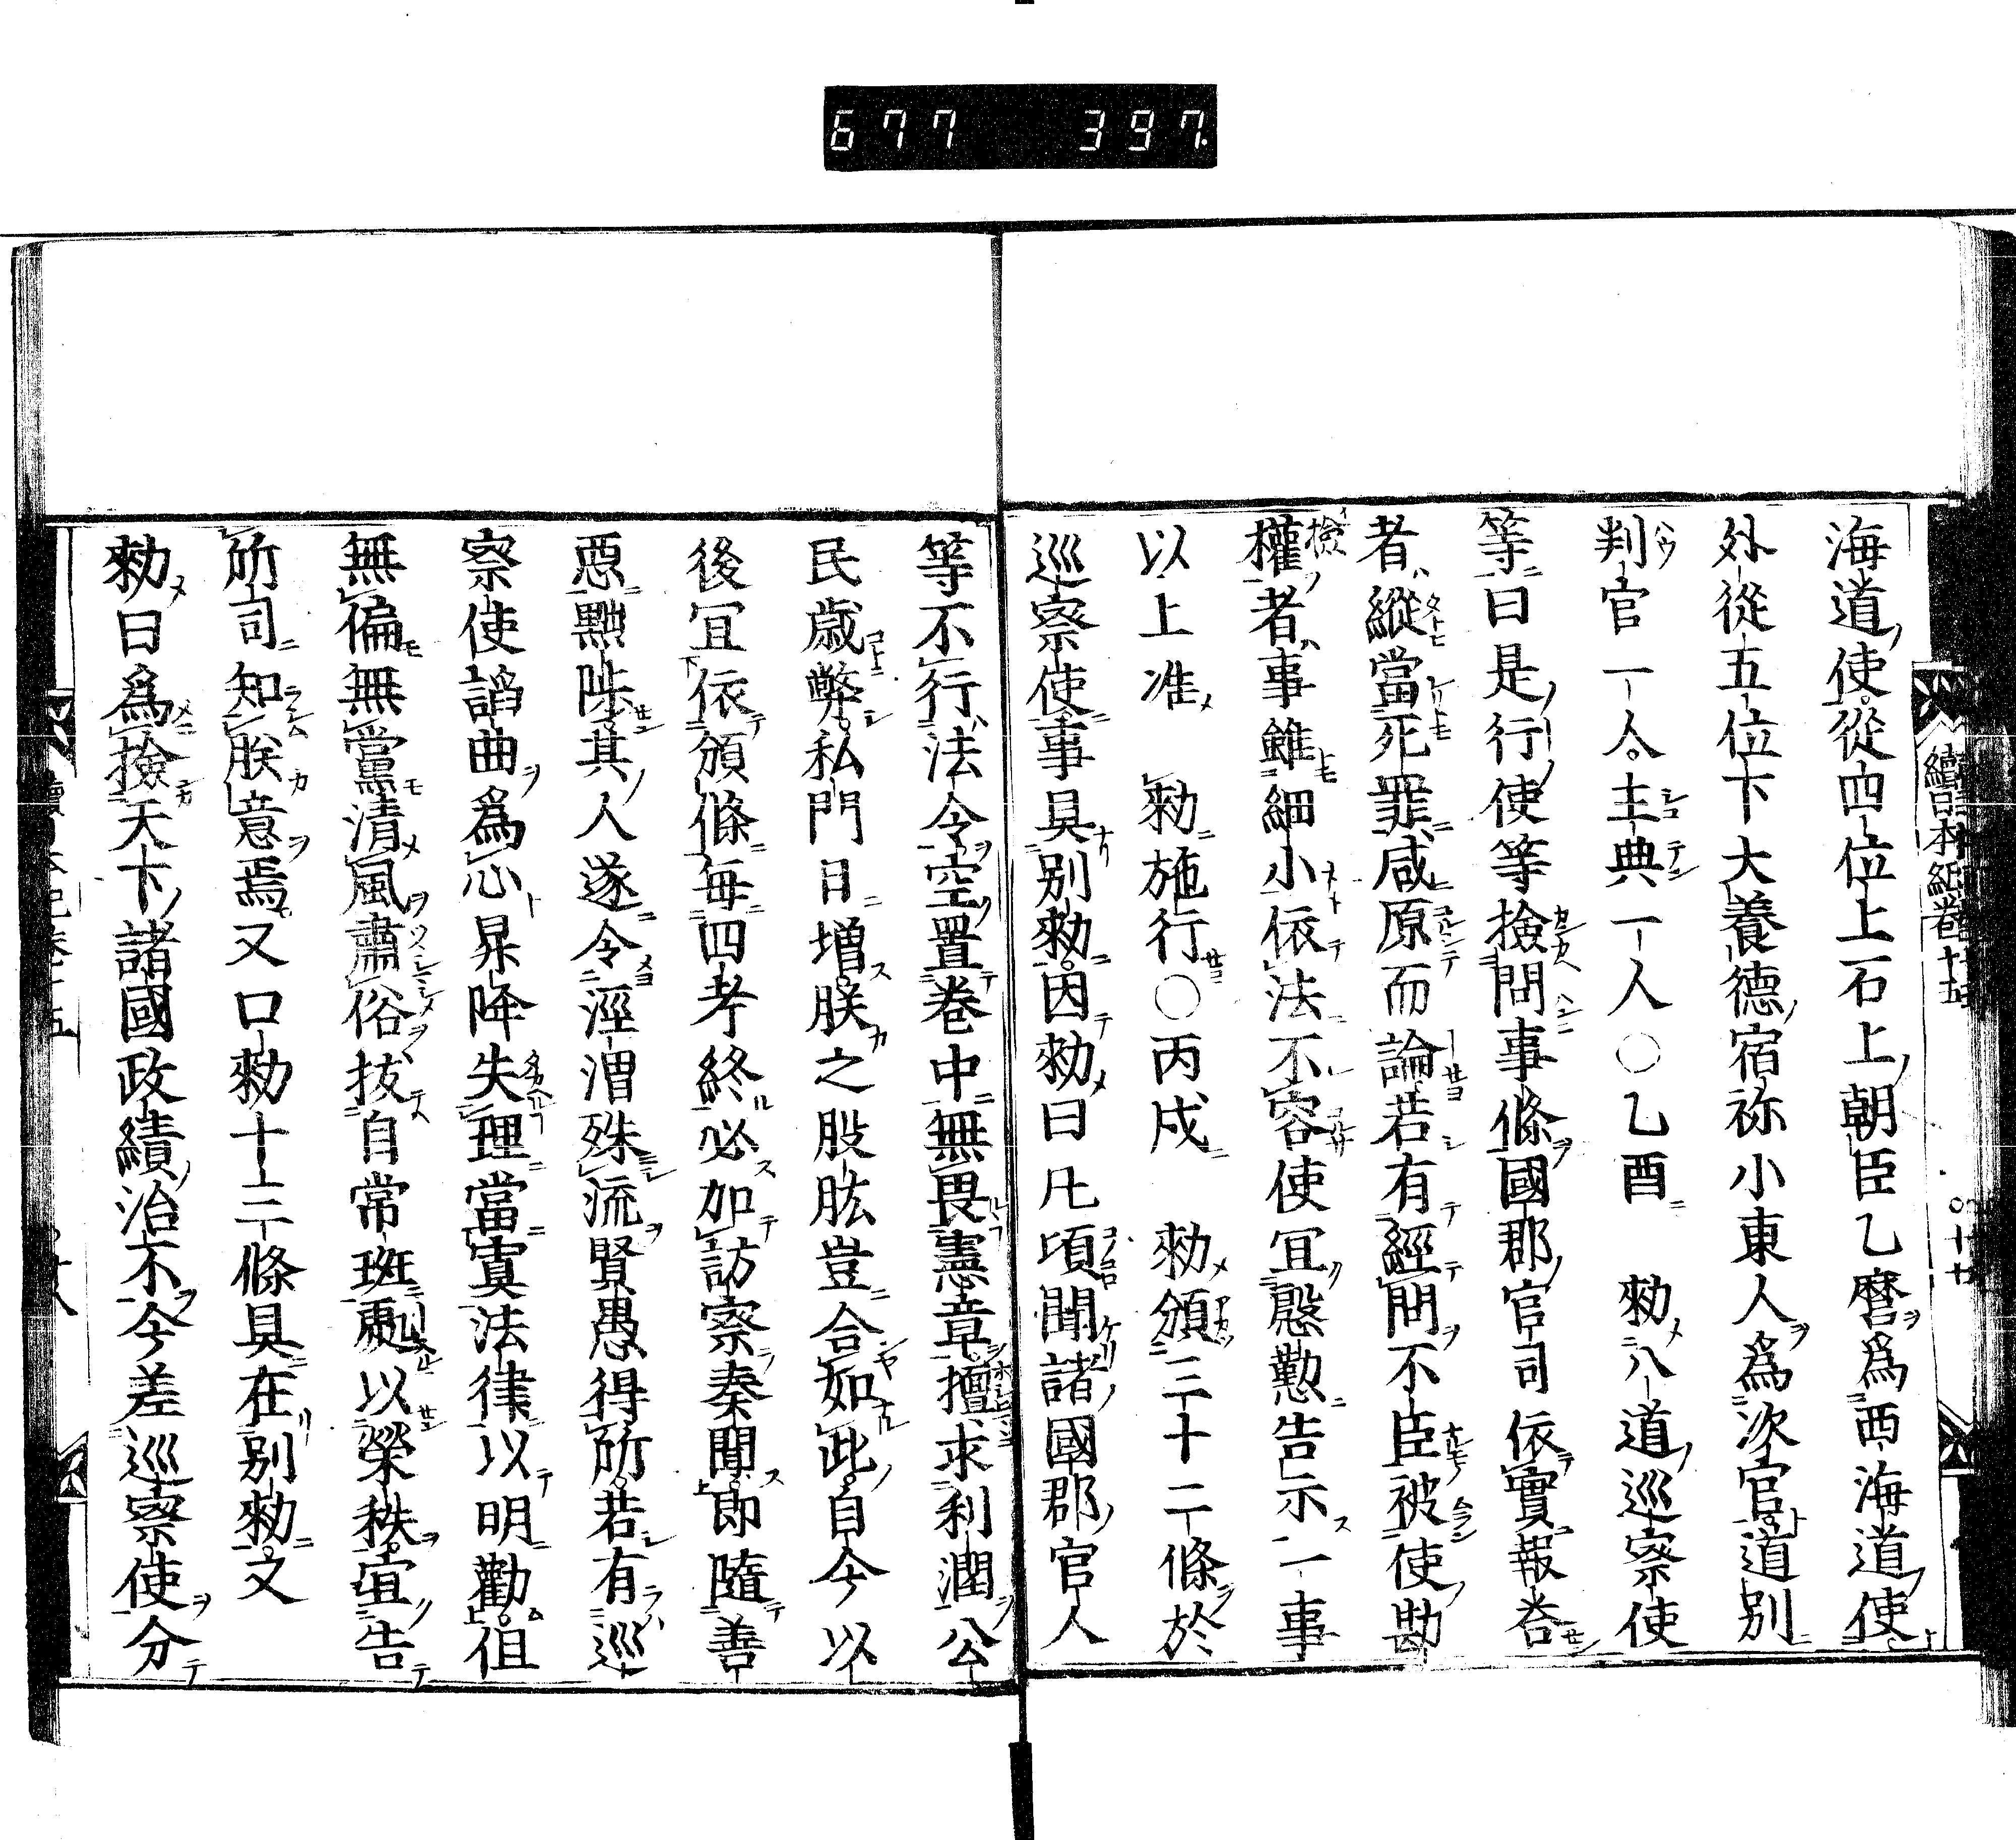 677 397
續日本紀卷十五
海道使從四位上石上朝臣乙麿爲西海道使
外從五位下大養德宿祢小東人爲次官道別
判官一人主典一人○乙酉 勑八道巡察使
等曰是行使等撿問事條國郡官司依實報答
者縱當死罪咸原而論若有經問不臣被使勘
權者事雖細小依法不容使冝慇懃告示一事
以上准 勑施行○丙戌 勑頒三十二條於
巡察使事具別勑因勑曰凡頃聞諸國郡官人
等不行法令空置卷中無畏憲章擅求利潤公
民歳弊私門日增朕之股肱豈合如此自今以
後冝依頒條每四考終必加訪察奏聞即隨善
惡黜陟其人遂令涇渭殊流賢愚得所若有巡
察使諂曲爲心昇降失理當寘法律以明勸沮
無偏無黨清風肅俗拔自常班處以榮秩宜告
所司知朕意焉又口勑十三條具在別勑又
勑曰爲撿天下諸國政績治不今差巡察使分